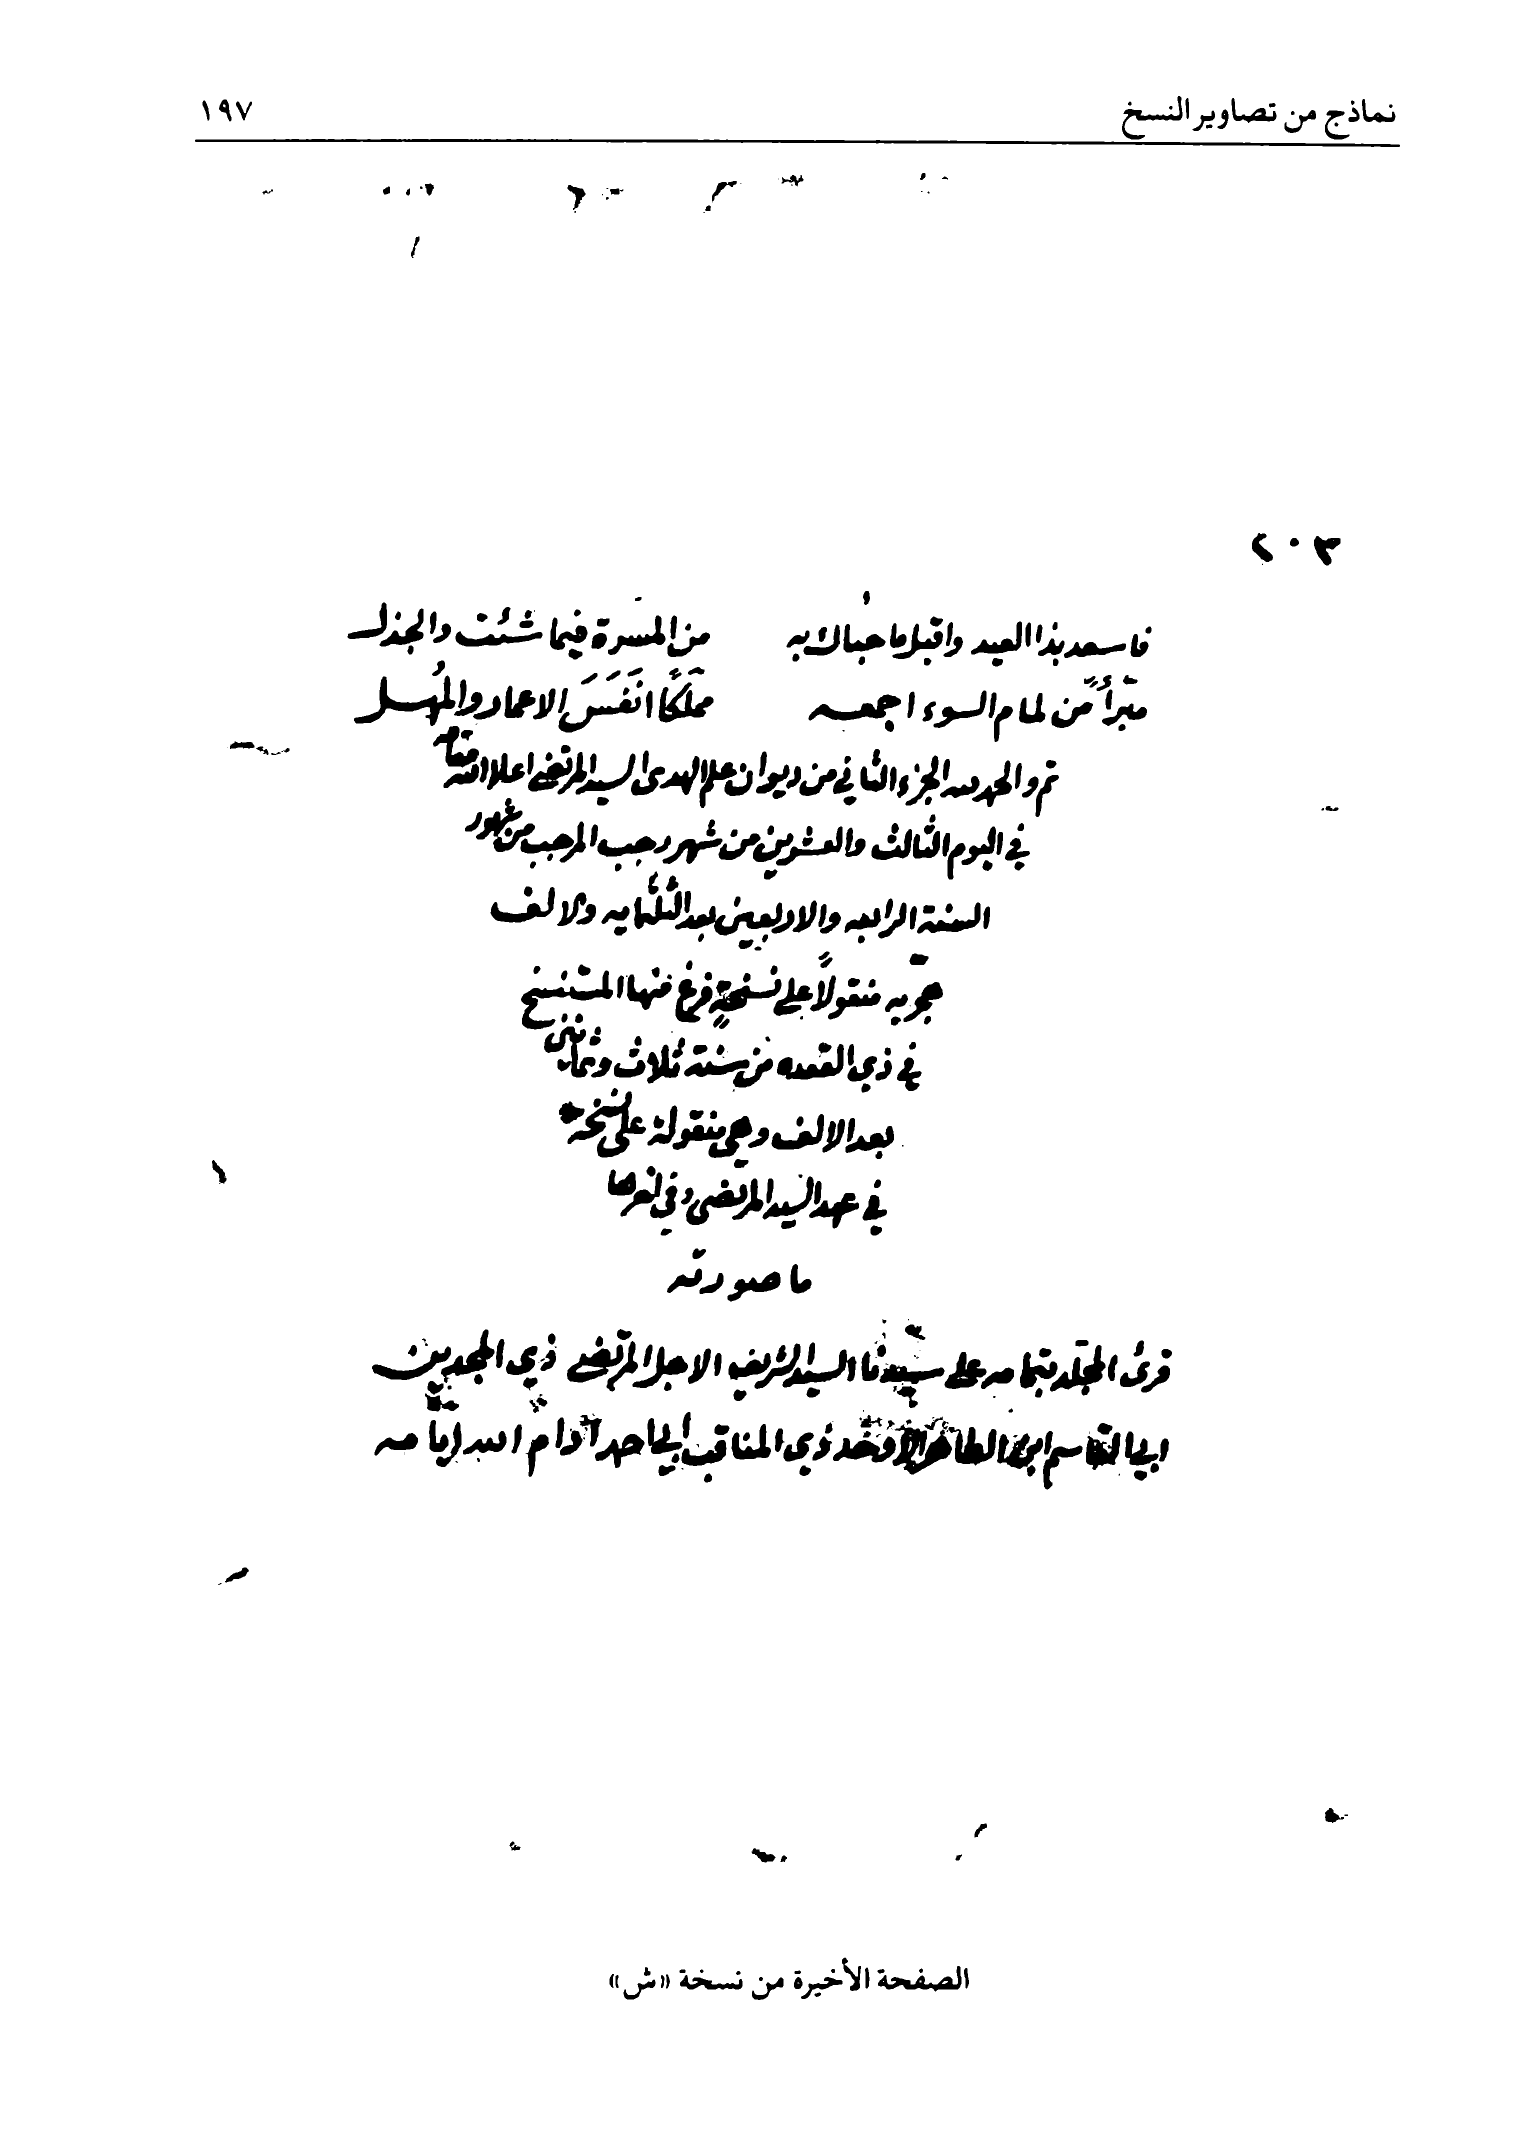 نماذج من تصاوير النسخ ١٩٧
٢٠٣
فاسعد بذا العيد واقبل ما حباك به من المسرة فيما شئت والجذل
مبّرأً من لمام السوء اجمعه مملّكًا انفَسَ الاعمار والمُهل
تم والحمد لله الجزء الثاني من ديوان علم الهدى السيد المرتضى اعلا الله مقامه
في اليوم الثالث والعشرين من شهر رجب المرجب من شهور
السنة الرابعه والاربعين بعد الثلثمايه والالف
هجريه منقولاً على نسخةٍ فرغ منها المستنسخ
في ذي القعده من سنة ثلاث وثمانين
بعد الالف وهي منقولة على نسخه
في عهد السيد المرتضى وفي اخرها
ما صورته
قرئ المجلّد بتمامه على سيدنا السيد الشريف الاجل المرتضى ذي المجدين
ابي القاسم ابن الطاهر الأوحد ذي المناقب ابي احمد ادام الله ايّامه
الصفحة الأخيرة من نسخة «ش»